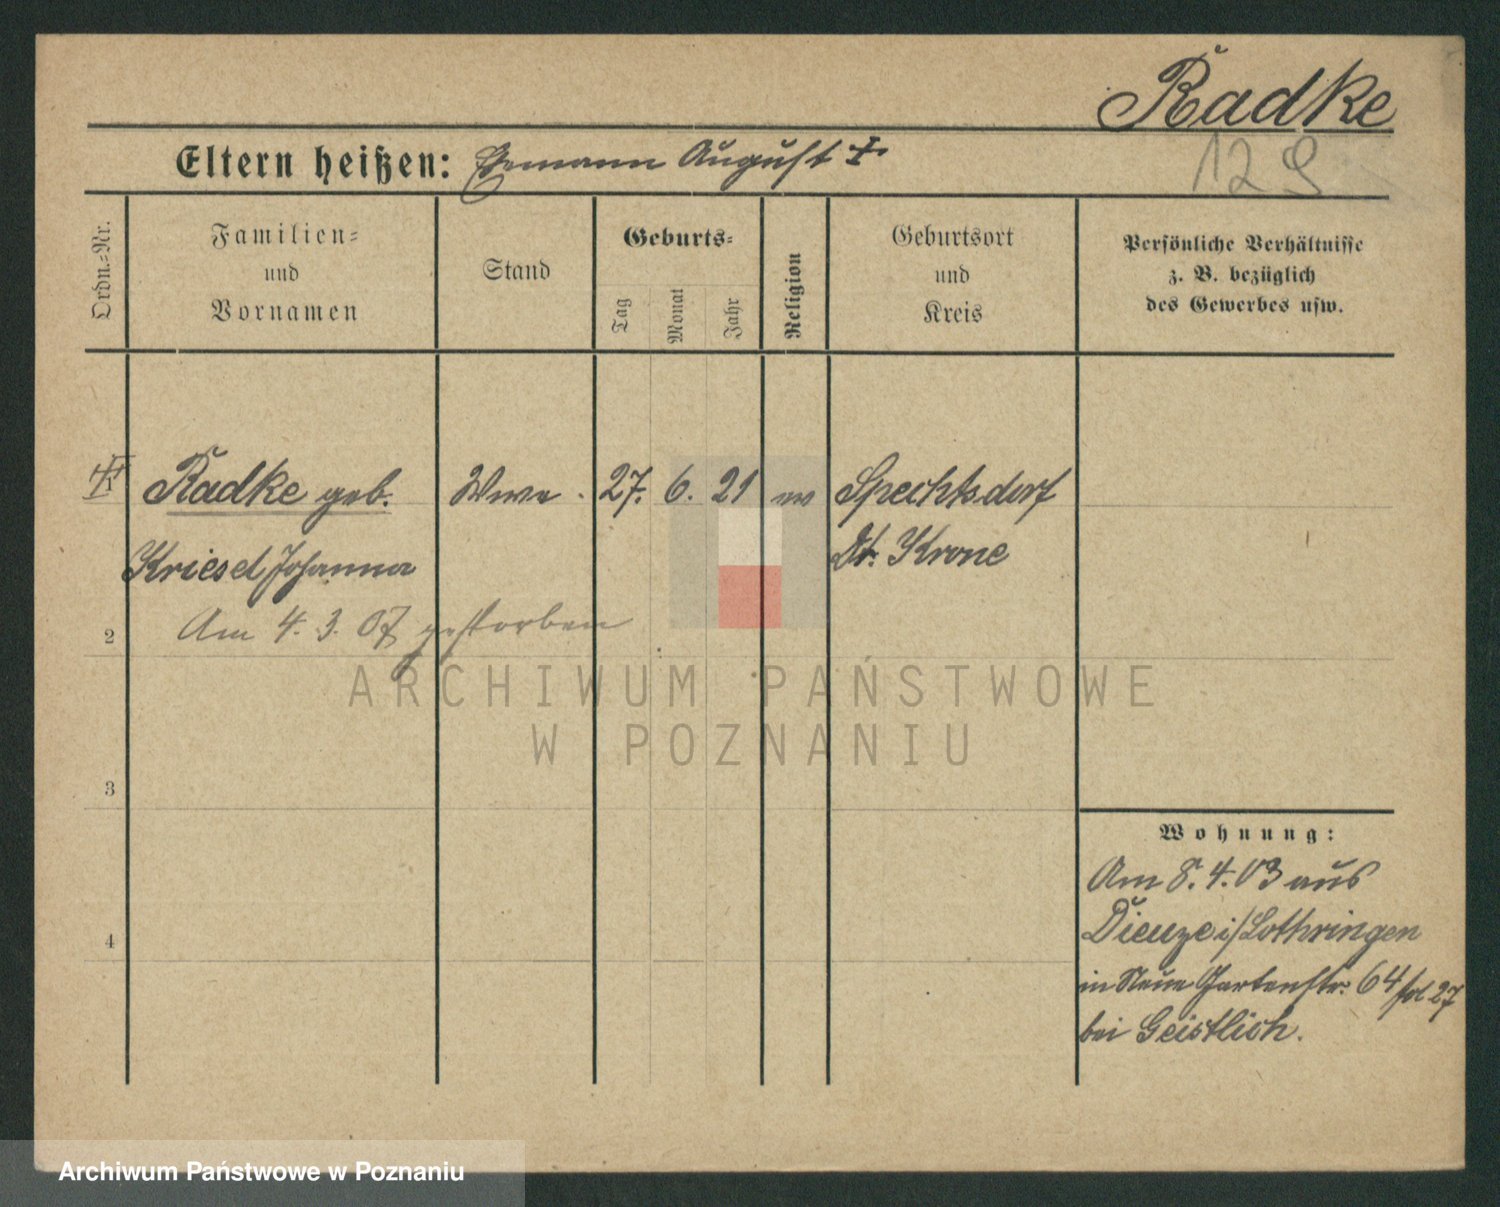 Radke
129
Eltern heißen: Ehemann August +
Ordn.-Nr.
Familien-
und
Vornamen
Stand
Geburts-
Tag
Monat
Jahr
Religion
Geburtsort
und
Kreis
Persönliche Verhältnisse
z. B. bezüglich
des Gewerbes usw.
Radke geb. Wwe. 27. 6. 21 ev Spechtsdorf
Kriesel Johanna Dt. Krone
Am 4. 3. 07 gestorben
2
3
4
Wohnung:
Am 8. 4. 03 aus
Dieuze i/Lothringen
in Neue Gartenstr. 64 fol 27
bei Geistlich.
ARCHIWUM PAŃSTWOWE
W POZNANIU
Archiwum Państwowe w Poznaniu